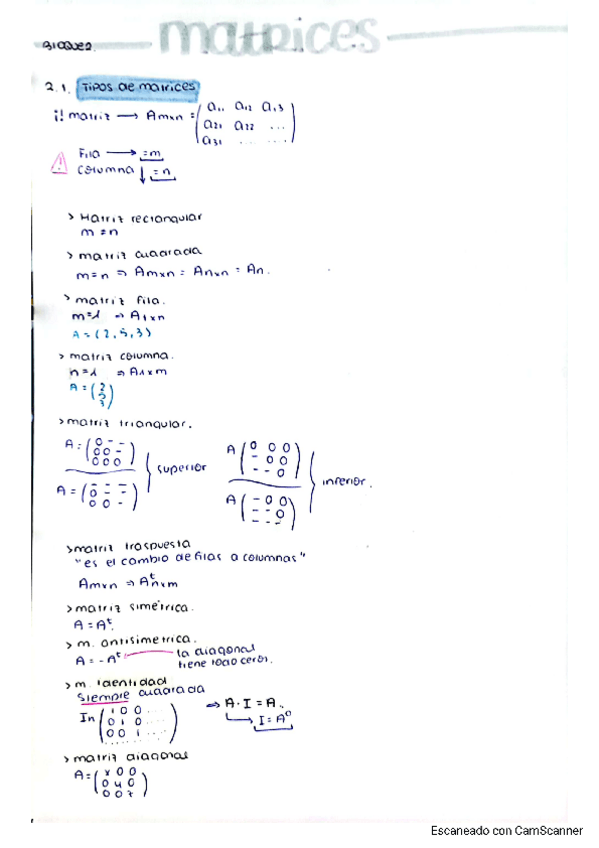 Bloque 2.
matrices
2.1. Tipos de matrices
¡! matriz → Amxn = (a11 a12 a13
a21 a22 ...
a31 ... ...)
Fila → = m
columna ↓ = n
> Matriz rectangular
m ≠ n
> matriz cuadrada
m=n ⇒ Amxn = Anxn = An.
> matriz fila.
m=1 ⇒ A1xn
A = (2, 5, 3)
> matriz columna.
n=1 ⇒ A1xm
A = (2
5
3)
> matriz triangular.
A = (0 - -
0 0 -
0 0 0)
A = (- - -
0 - -
0 0 -)
} superior
A (0 0 0
- 0 0
- - 0)
A (- 0 0
- - 0
- - -)
} inferior.
> matriz traspuesta
"es el cambio de filas a columnas"
Amxn ⇒ Aᵗnxm
> matriz simétrica.
A = Aᵗ.
> m. antisimetrica.
A = - Aᵗ la diagonal
tiene todo ceros.
> m. identidad
siempre cuadrada
In (1 0 0 ...
0 1 0 ...
0 0 1 ...
........)
⇒ A · I = A.
I = A⁰
> matriz diagonal
A = (x 0 0
0 y 0
0 0 z)
Escaneado con CamScanner